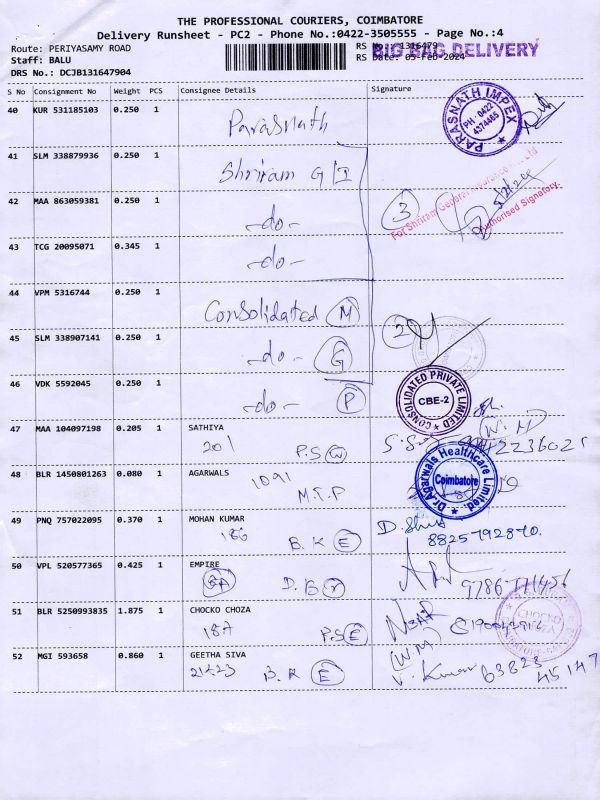 THE PROFESSIONAL COURIERS, COIMBATORE
Delivery Runsheet - PC2 - Phone No.:0422-3505555 - Page No.:4
Route: PERIYASAMY ROAD
RS No.: 1316479
BIG BAG DELIVERY
Staff: BALU
RS Date: 05-Feb-2024
DRS No.: DCJB131647904
S No Consignment No Weight PCS Consignee Details Signature
40 KUR 531185103 0.250 1 Parasnath
PARASNATH IMPEX PH - 0422 4374485
41 SLM 338879936 0.250 1 Shriram G I
For Shriram General Insurance Ltd
Authorised Signatory.
42 MAA 863059381 0.250 1 -do- 3
43 TCG 20095071 0.345 1 -do-
44 VPM 5316744 0.250 1 Consolidated M
45 SLM 338907141 0.250 1 -do- G 2
46 VDK 5592045 0.250 1 -do- P
CONSOLIDATED PRIVATE LIMITED CBE-2
47 MAA 104097198 0.205 1 SATHIYA
201 P.S W
48 BLR 1450801263 0.080 1 AGARWALS
1091 M.T.P
Dr.Agarwals Healthcare Limited. Coimbatore
49 PNQ 757022095 0.370 1 MOHAN KUMAR
186 B.K E
88257928 70.
50 VPL 520577365 0.425 1 EMPIRE
D.B
51 BLR 5250993835 1.875 1 CHOCKO CHOZA
18A P.S E
CHOCKO CHOZA
52 MGI 593658 0.860 1 GEETHA SIVA
B.R E
V. Kumar 63823
45147